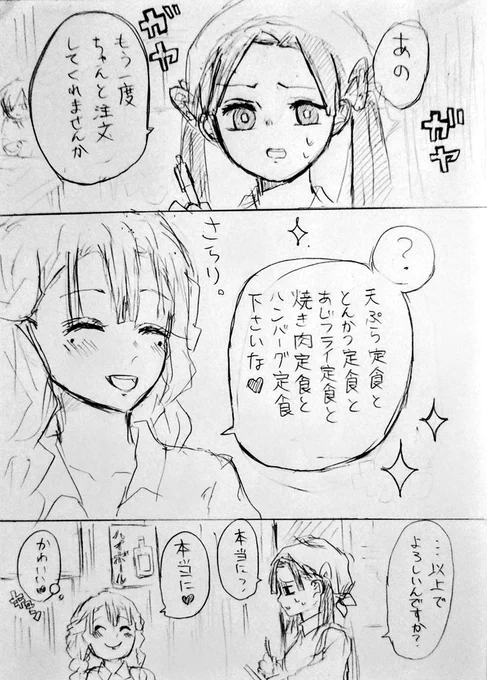 あの
ガヤ
ガヤ
もう一度
ちゃんと注文
してくれませんか
?
天ぷら定食と
とんかつ定食と
あじフライ定食と
焼き肉定食と
ハンバーグ定食
下さいな♥
さらり。
…以上で
よろしいんですか?
本当に?
本当に♥
ハイボール
かわいい♥